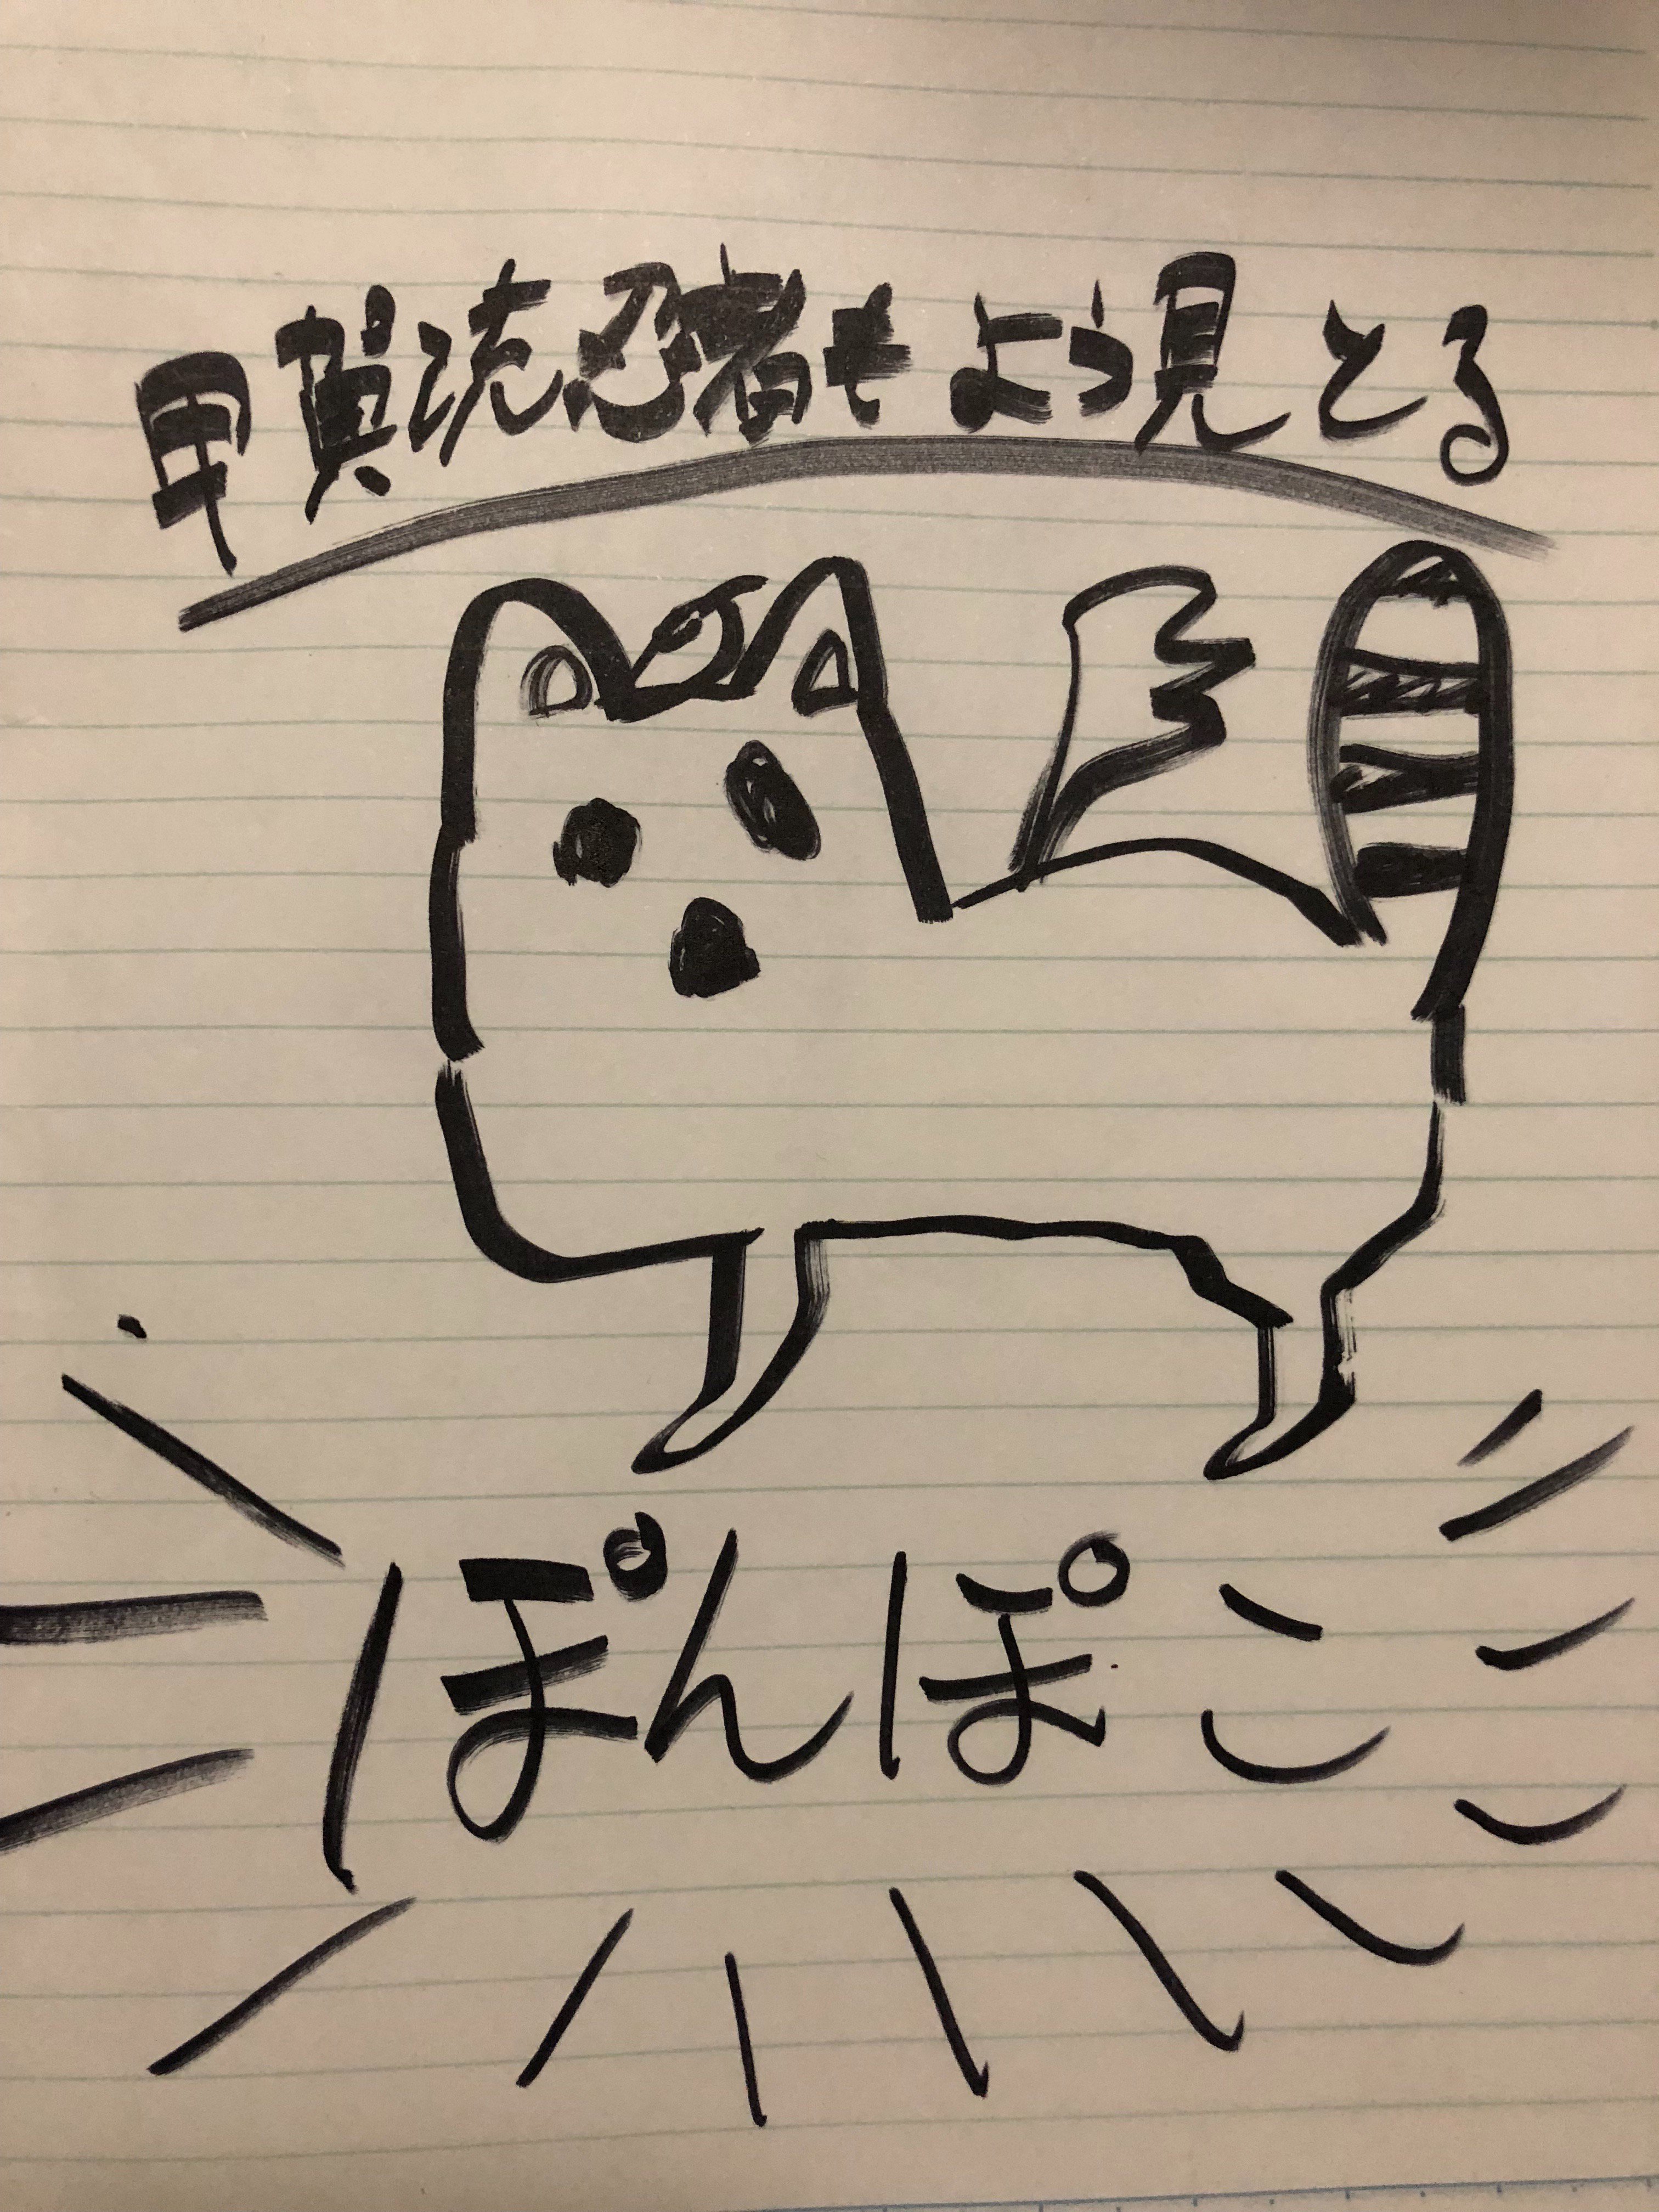 甲賀流忍者もよう見とる
ぽんぽこ